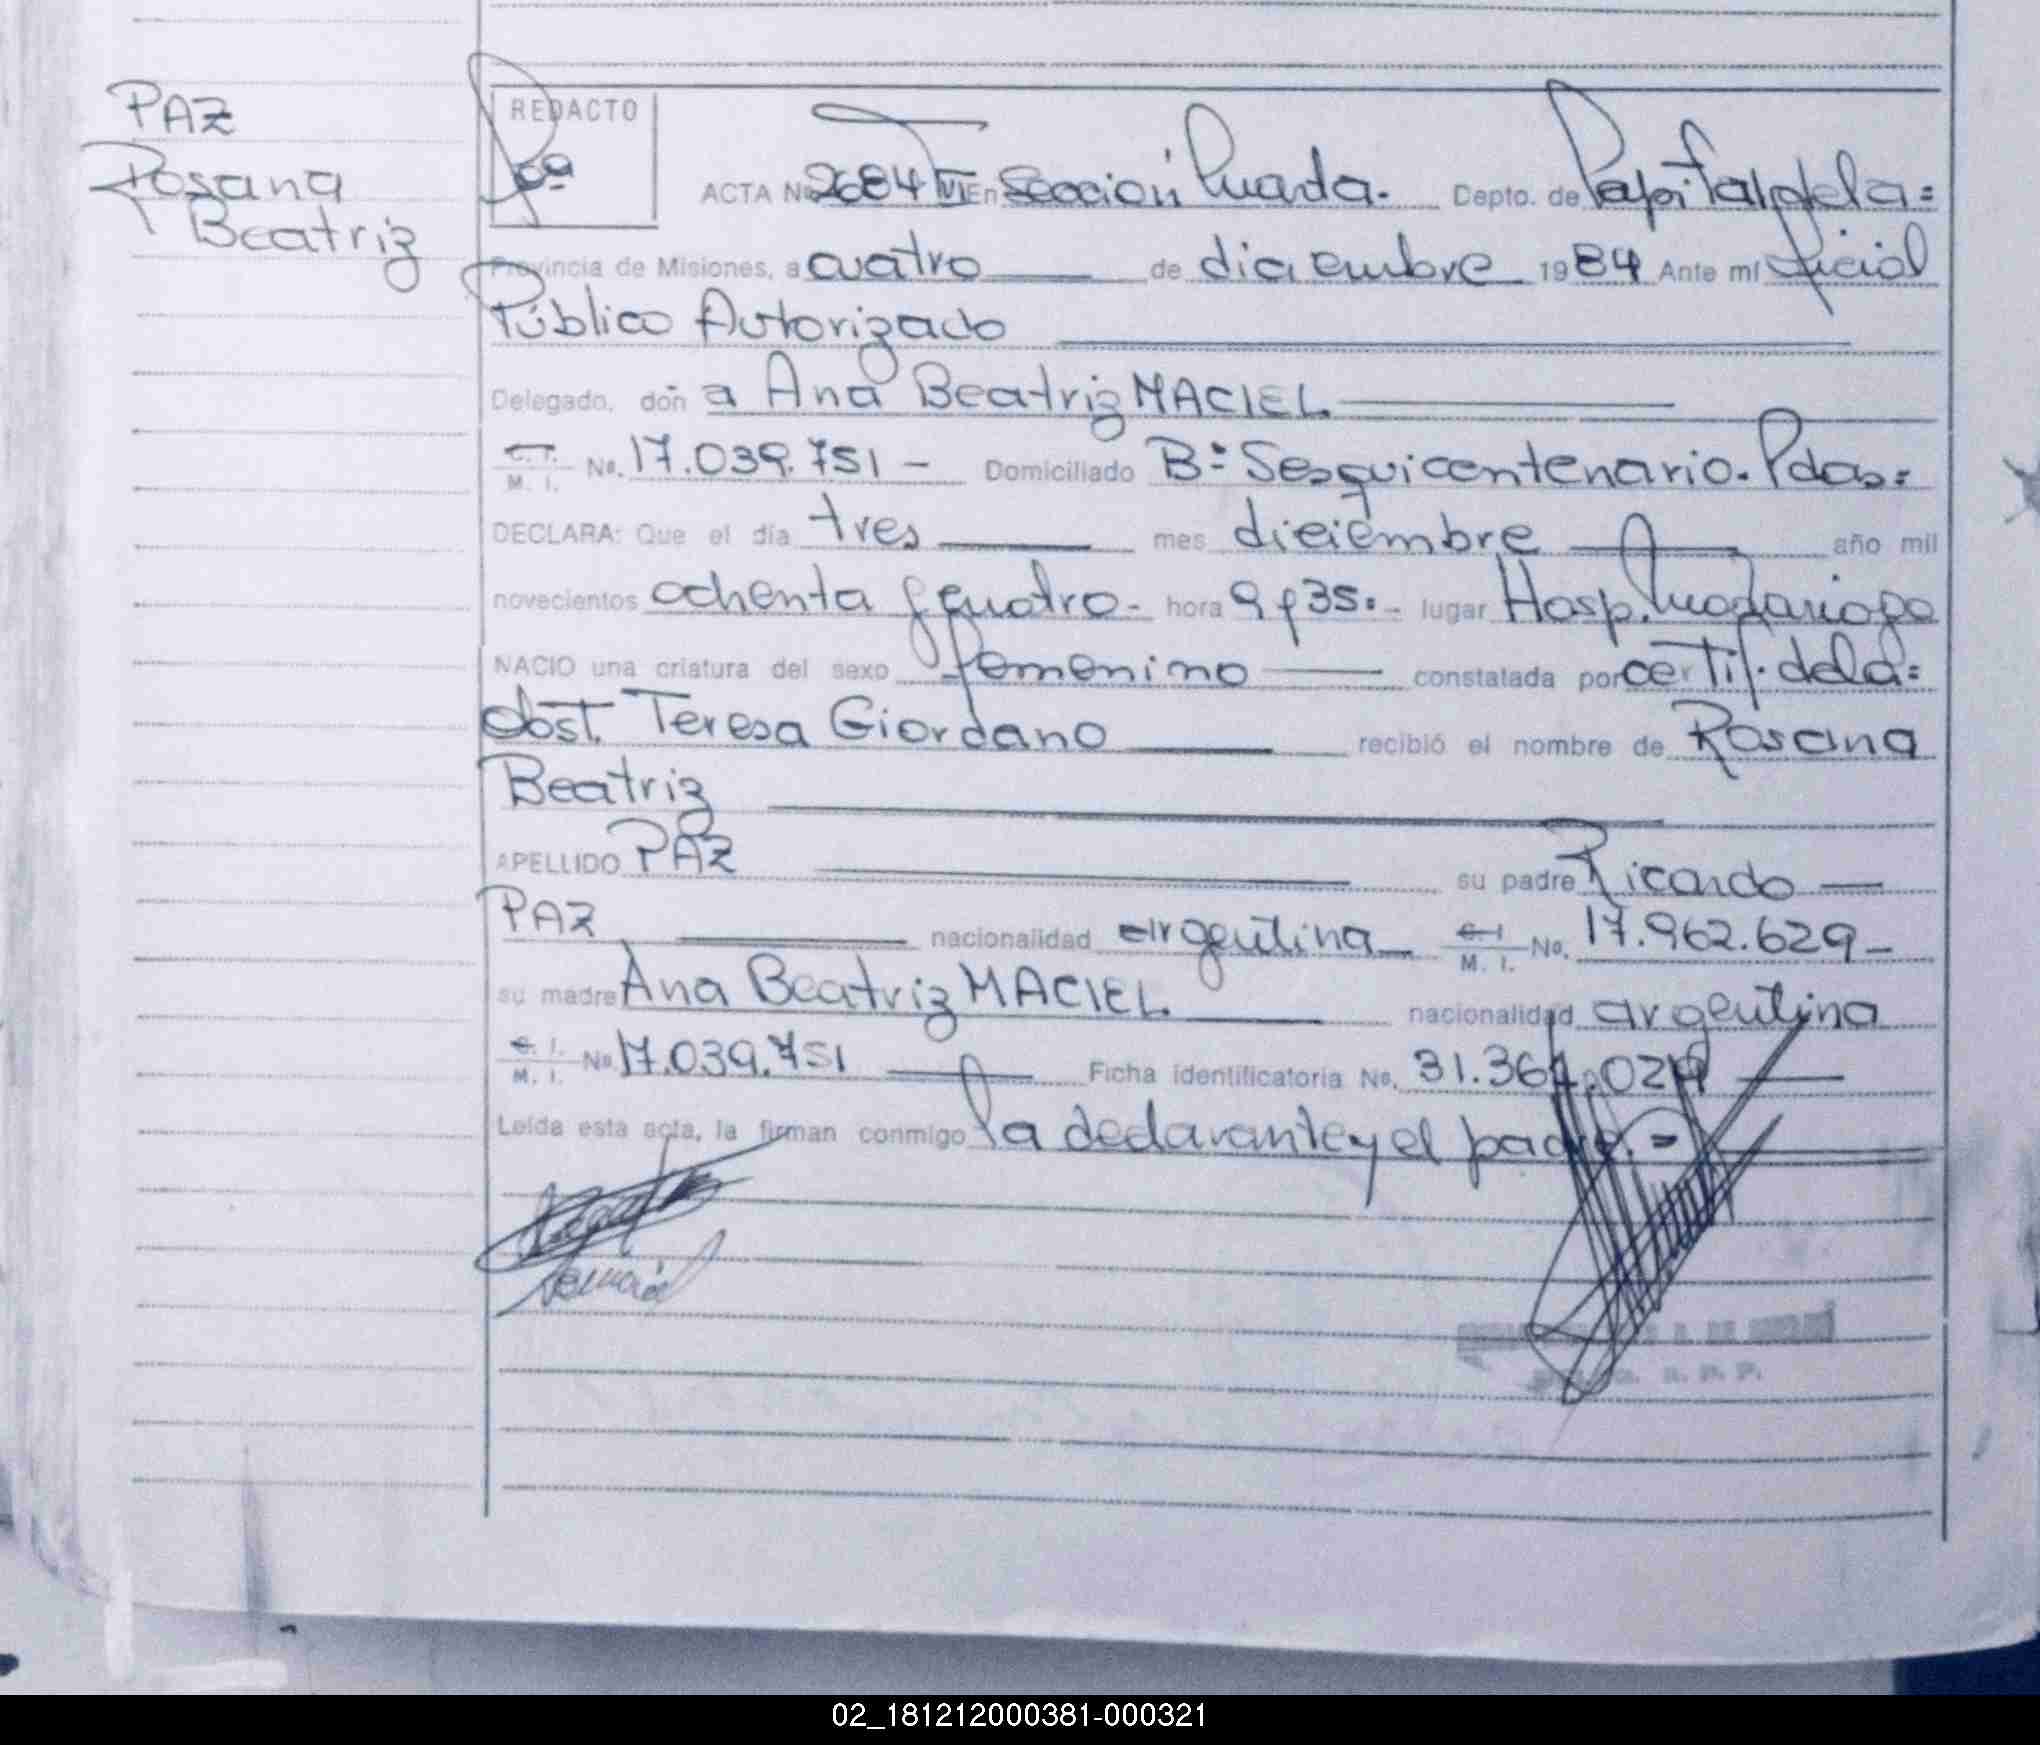 PAZ
Rosana
Beatriz
REDACTO
ACTA Nº 2684 TVI En Sección Cuarta.- Depto. de Capital, de la=
Provincia de Misiones, a cuatro de diciembre 1984 Ante mí Oficial
Público Autorizado
Delegado, don a Ana Beatriz MACIEL
C. I.
M. I. No. 17.039.751 - Domiciliado Bº Sesquicentenario. Pdas=
DECLARA: Que el día tres mes dieiembre año mil
novecientos ochenta y cuatro.- hora 9 y 35.- lugar Hosp.
NACIO una criatura del sexo femenino constatada por certif. de la=
Obst. Teresa Giordano recibió el nombre de Rosana
Beatriz
APELLIDO PAZ su padre Ricardo
PAZ nacionalidad argentina C. I. M. I. No. 17.962.629-
su madre Ana Beatriz MACIEL nacionalidad argentina
C. I. M. I. No. 17.039.751 Ficha identificatoria No. 31.364.024
Leída esta acta, la firman conmigo la declarante y el padre.=
02_181212000381-000321